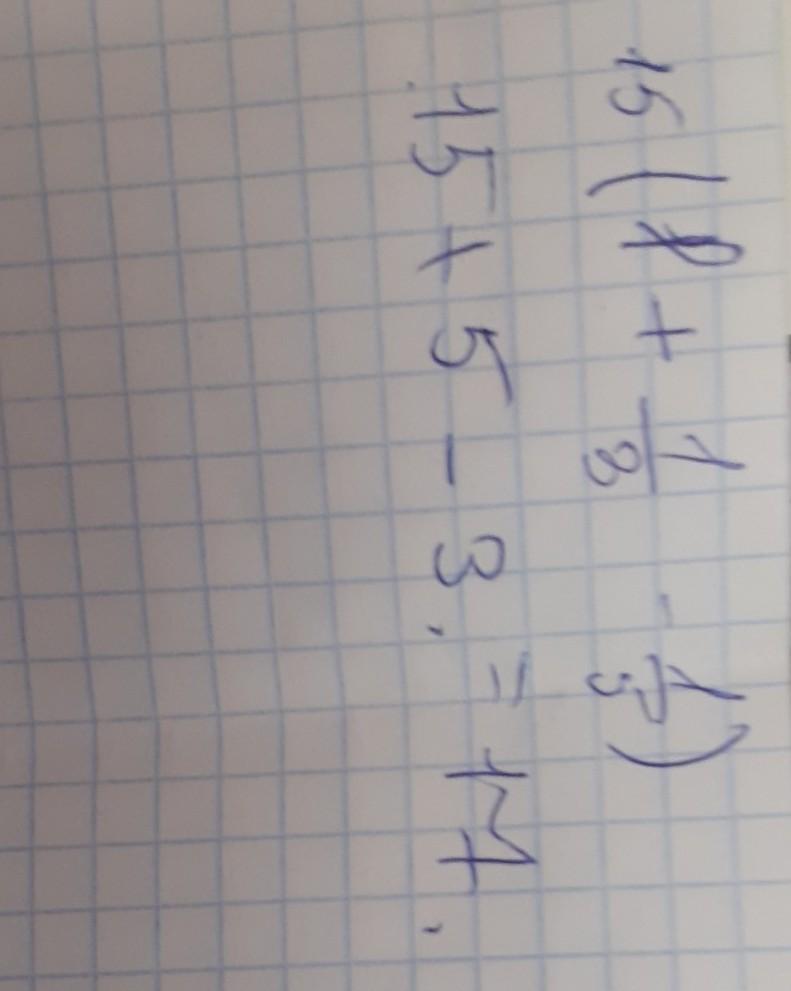 15(1 + 1/3 - 1/5)
15 + 5 - 3. = 17.